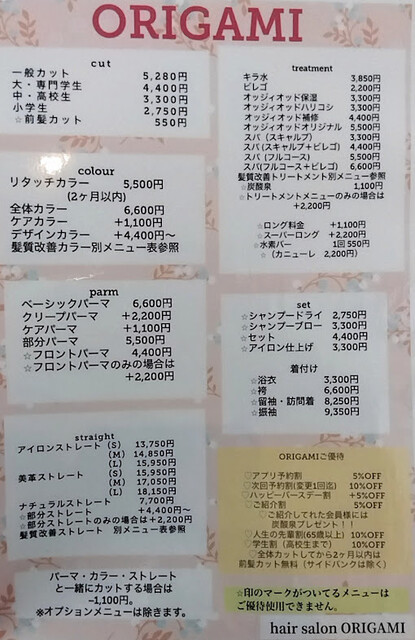 ORIGAMI
cut
一般カット 5,280円
大・専門学生 4,400円
中・高校生 3,300円
小学生 2,750円
☆前髪カット 550円
colour
リタッチカラー 5,500円
(2ヶ月以内)
全体カラー 6,600円
ケアカラー +1,100円
デザインカラー +4,400円〜
髪質改善カラー別メニュー表参照
parm
ベーシックパーマ 6,600円
クリープパーマ +2,200円
ケアパーマ +1,100円
部分パーマ 5,500円
☆フロントパーマ 4,400円
☆フロントパーマのみの場合は
+2,200円
straight
アイロンストレート (S) 13,750円
(M) 14,850円
(L) 15,950円
美革ストレート (S) 15,950円
(M) 17,050円
(L) 18,150円
ナチュラルストレート 7,700円
☆部分ストレート +4,400円〜
☆部分ストレートのみの場合は+2,200円
髪質改善ストレート 別メニュー表参照
パーマ・カラー・ストレート
と一緒にカットする場合は
−1,100円。
※オプションメニューは除きます。
treatment
キラ水 3,850円
ピレゴ 2,200円
オッジィオット保湿 3,300円
オッジィオットハリコシ 3,300円
オッジィオット補修 4,400円
オッジィオットオリジナル 5,500円
スパ (スキャルプ) 3,300円
スパ (スキャルプ+ピレゴ) 4,400円
スパ (フルコース) 5,500円
スパ(フルコース+ピレゴ) 6,600円
髪質改善トリートメント別メニュー参照
☆炭酸泉 1,100円
☆トリートメントメニューのみの場合は
+2,200円
☆ロング料金 +1,100円
☆スーパーロング +2,200円
☆水素バー 1回 550円
☆(カニューレ 2,200円)
set
☆シャンプードライ 2,750円
☆シャンプーブロー 3,300円
☆セット 4,400円
☆アイロン仕上げ 3,300円
着付け
☆浴衣 3,300円
☆袴 6,600円
☆留袖・訪問着 8,250円
☆振袖 9,350円
ORIGAMIご優待
♡アプリ予約割 5%OFF
♡次回予約割(変更1回迄) 10%OFF
♡ハッピーバースデー割 +5%OFF
♡ご紹介割 5%OFF
♡ご紹介してれた会員様には
炭酸泉プレゼント！！
♡人生の先輩割(65歳以上) 10%OFF
♡学生割（高校生まで） 10%OFF
♡全体カットしてから2ヶ月以内は
前髪カット無料（サイドバンクは除く）
☆印のマークがついてるメニューは
ご優待使用できません。
hair salon ORIGAMI